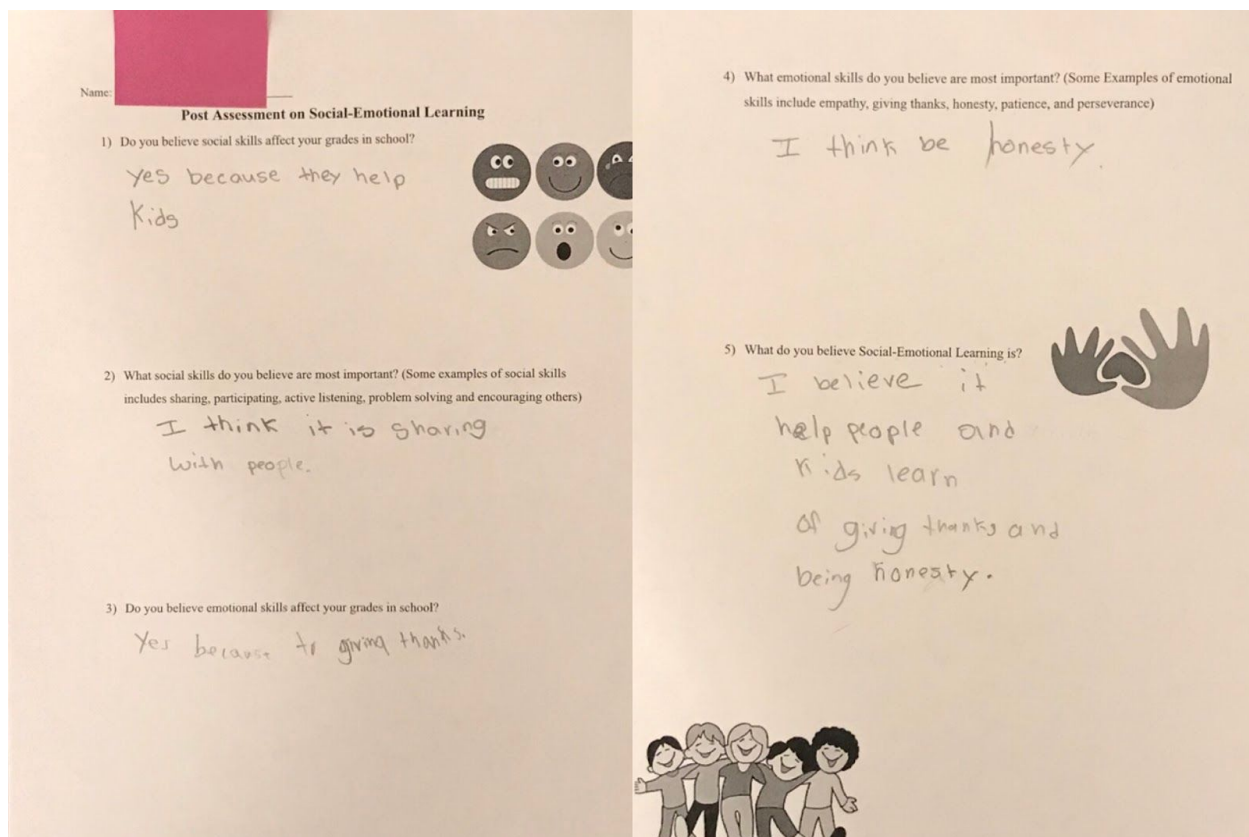 Name:
Post Assessment on Social-Emotional Learning
1) Do you believe social skills affect your grades in school?
yes because they help
Kids
2) What social skills do you believe are most important? (Some examples of social skills
includes sharing, participating, active listening, problem solving and encouraging others)
I think it is sharing
with people.
3) Do you believe emotional skills affect your grades in school?
Yes because to giving thanks.
4) What emotional skills do you believe are most important? (Some Examples of emotional
skills include empathy, giving thanks, honesty, patience, and perseverance)
I think be honesty.
5) What do you believe Social-Emotional Learning is?
I believe it
help people and
kids learn
of giving thanks and
being honesty.